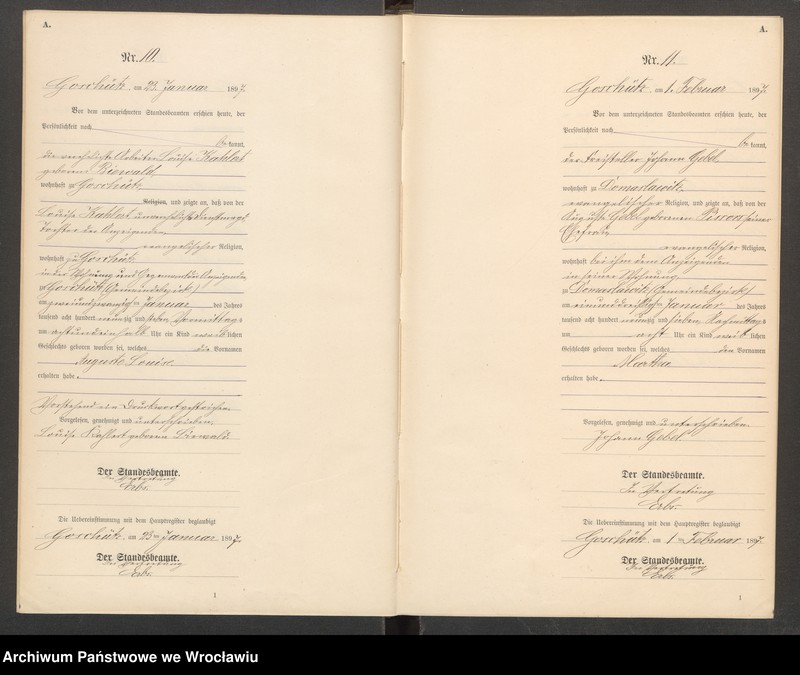 A.
Nr. 10.
Goschütz, am 23. Januar 1897.
Vor dem unterzeichneten Standesbeamten erschien heute, der
Persönlichkeit nach
be kannt,
die verehelichte Arbeiter Louise Kahlert
geborene
wohnhaft zu Goschütz
Religion, und zeigte an, daß von der
Louise Kahlert, unverehelichte Dienstmagd
Tochter der Anzeigenden
evangelischer Religion,
wohnhaft zu Goschütz
in der Wohnung und Gegenwart der Anzeigenden
zu Goschütz (Gemeindebezirk)
am zweiundzwanzigsten Januar des Jahres
tausend acht hundert neunzig und sieben Vormittags
um achtundeinhalb Uhr ein Kind weib lichen
Geschlechts geboren worden sei, welches die Vornamen
Auguste Louise
erhalten habe.
Vorstehend ein Druckwort gestrichen.
Vorgelesen, genehmigt und unterschrieben.
Louise Kahlert geborene
Der Standesbeamte.
In Vertretung
Erbr.
Die Uebereinstimmung mit dem Hauptregister beglaubigt
Goschütz, am 23ten Januar 1897.
Der Standesbeamte.
In Vertretung
Erbr.
1
A.
Nr. 11.
Goschütz, am 1. Februar 1897.
Vor dem unterzeichneten Standesbeamten erschien heute, der
Persönlichkeit nach
be kannt,
der Freisteller Johann Gebel
wohnhaft zu Domaslawitz
evangelischer Religion, und zeigte an, daß von der
Auguste Gebel geborenen seiner
Ehefrau
evangelischer Religion,
wohnhaft bei ihm dem Anzeigenden
in seiner Wohnung
zu Domaslawitz (Gemeindebezirk)
am einunddreißigsten Januar des Jahres
tausend acht hundert neunzig und sieben Nachmittags
um acht Uhr ein Kind weib lichen
Geschlechts geboren worden sei, welches den Vornamen
Martha
erhalten habe.
Vorgelesen, genehmigt und unterschrieben.
Johann Gebel.
Der Standesbeamte.
In Vertretung
Erbr.
Die Uebereinstimmung mit dem Hauptregister beglaubigt
Goschütz, am 1ten Februar 1897.
Der Standesbeamte.
In Vertretung
Erbr.
1
Archiwum Państwowe we Wrocławiu